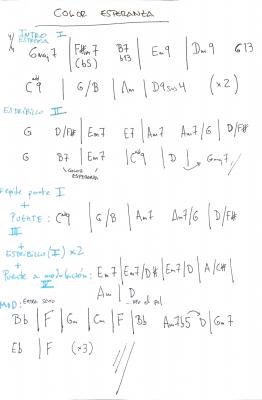 COLOR ESPERANZA
INTRO I
ESTROFA
Gmaj7 | F#m7 (b5) B7 b13 | Em9 | Dm9 G13
Cadd9 | G/B | Am | D9sus4 (x2)
ESTRIBILLO II
G D/F# | Em7 E7 | Am7 Am7/G | D/F#
G B7 | Em7 | Cadd9 | D | Gmaj7 //
"COLOR ESPERANZA"
Repite parte I
+
PUENTE: Cadd9 | G/B | Am7 Am7/G | D/F#
III
+
ESTRIBILLO (II) x2
+
Puente a modulación: Em7 | Em7/D# | Em7/D | A/C# |
IV Am | D
MOD:
Bb | F | Gm | Cm | F | Bb Am7b5 D | Gm7
Eb | F (x3)